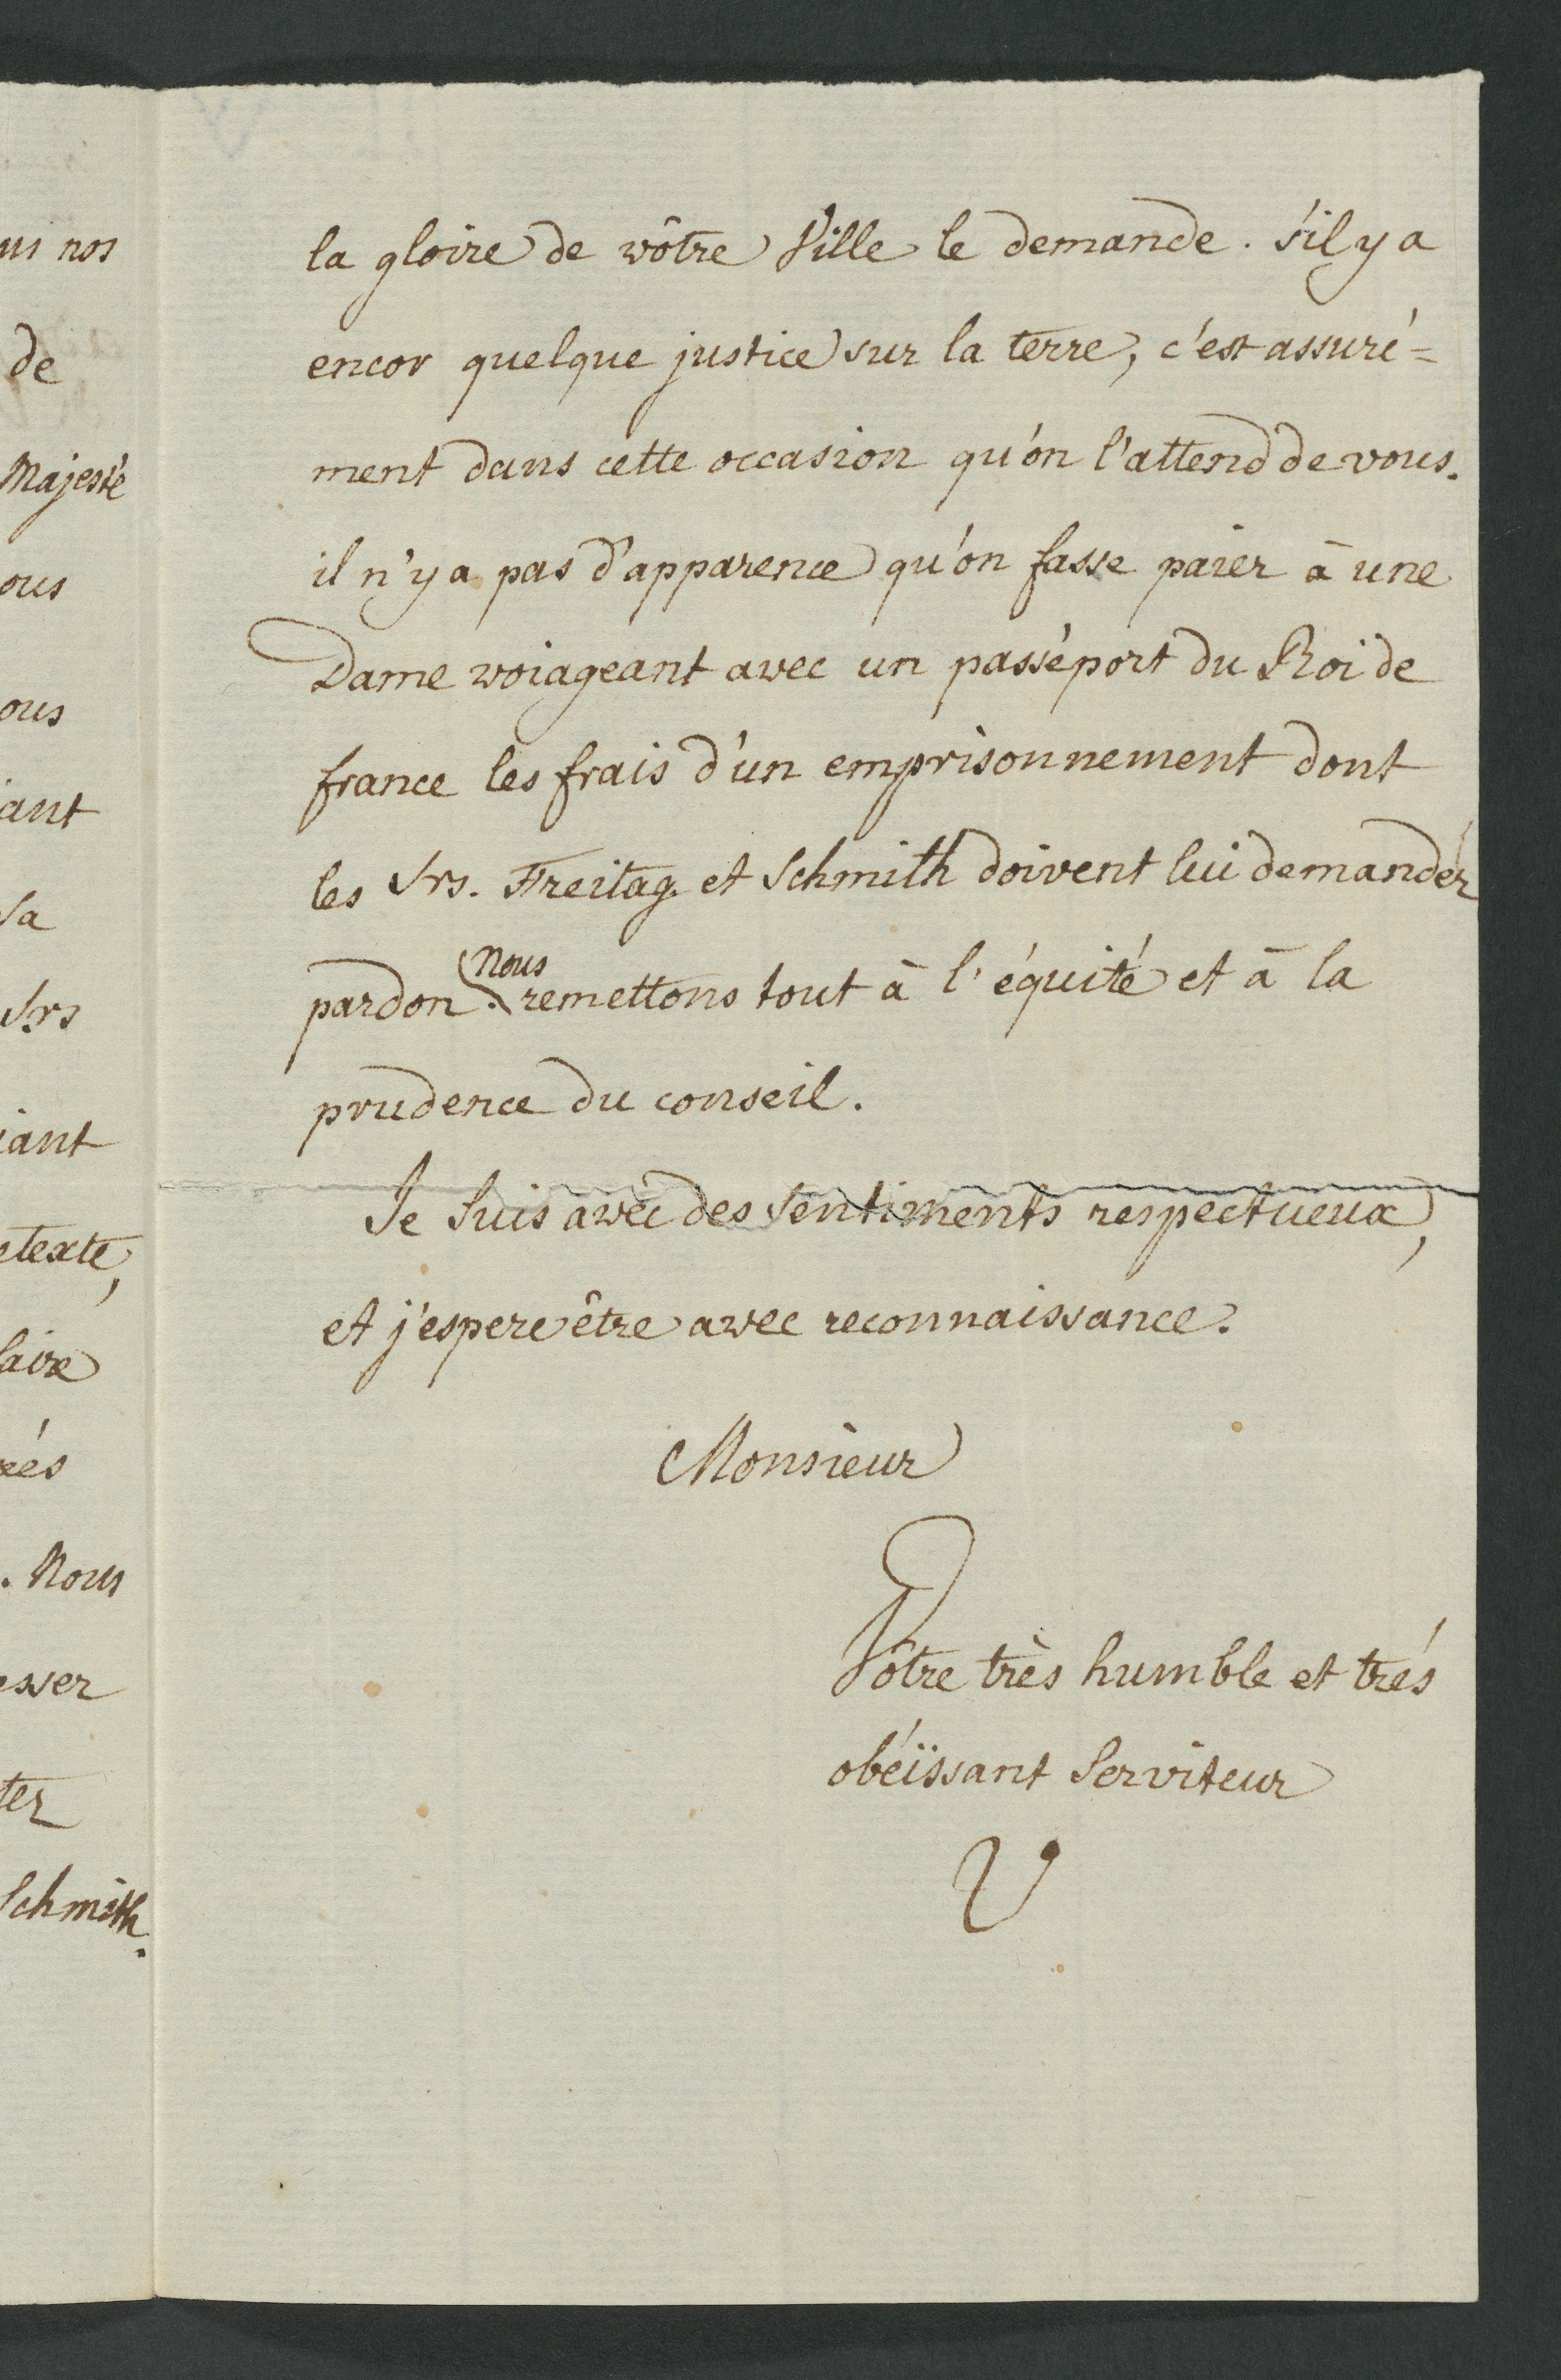 us nos
de
Majesté
ous
ous
iant
sa
Srs
iant
etexte,
faire
. Nous
esser
ter
Schmith.
la gloire de vôtre Ville le demande. s'il y a
encor quelque justice sur la terre, c'est assuré=
ment dans cette occasion qu'on l'attend de vous.
il n'y a pas d'apparence qu'on fasse paier à une
Dame voiageant avec un passéport du Roi de
france les frais d'un emprisonnement dont
les Srs. Freitag et Schmith doivent lui demander
pardon. Nous remettons tout à l'équité et à la
prudence du conseil.
Je suis avec des sentiments respectueux,
et j'espere être avec reconnaissance.
Monsieur
Vôtre très humble et trés
obéïssant Serviteur
V